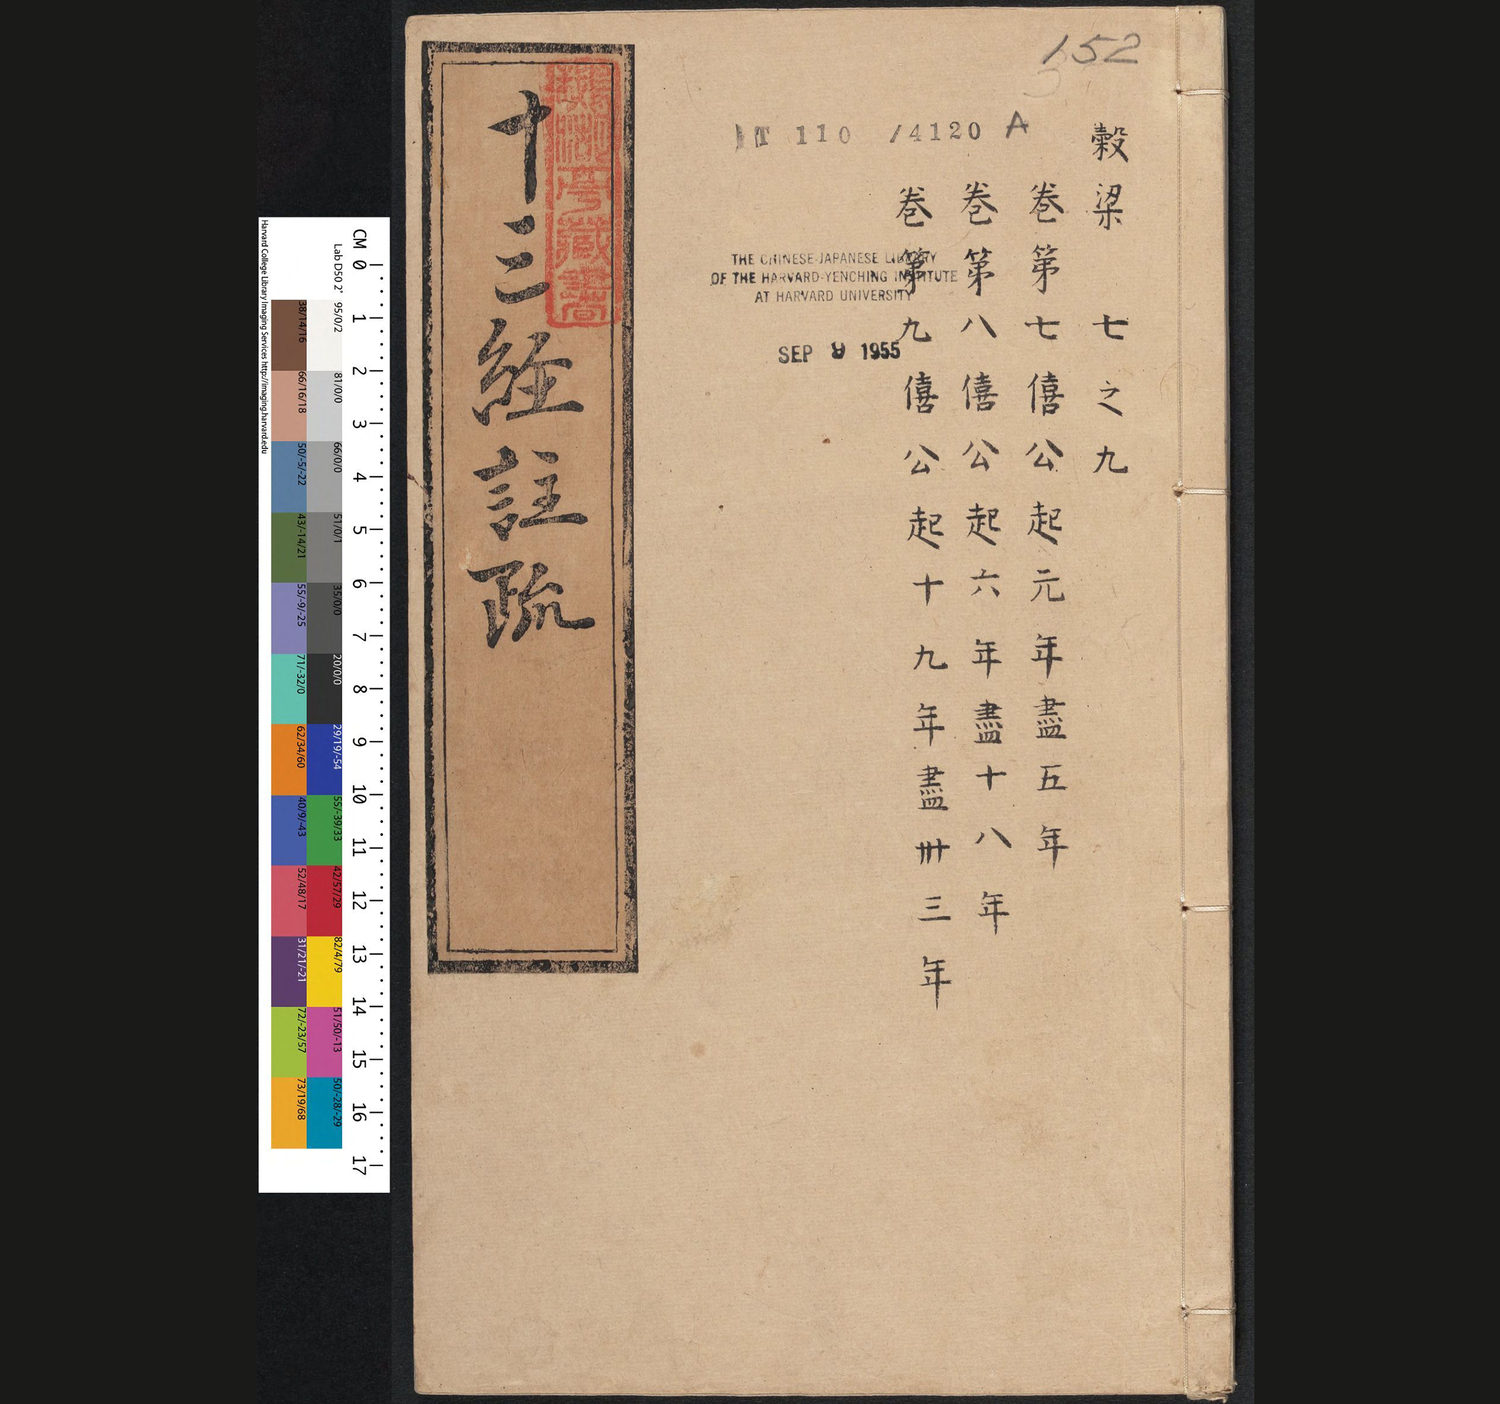 152
IT 110 /4120 A
穀梁 七之九
卷第七 僖公 起元年盡五年
卷第八 僖公 起六年盡十八年
卷第九 僖公 起十九年盡卅三年
THE CHINESE-JAPANESE LIBRARY
OF THE HARVARD-YENCHING INSTITUTE
AT HARVARD UNIVERSITY
SEP 9 1955
十三經註疏
藏書
CM 0 1 2 3 4 5 6 7 8 9 10 11 12 13 14 15 16 17
Lab D50 2˚ 95/0/2 81/0/0 66/0/0 51/0/1 35/0/0 20/0/0 29/19/-54 55/-39/33 42/57/29 82/4/79 51/50/-13 50/-28/-29
38/14/16 66/16/18 50/-5/-22 43/-14/21 55/-9/-25 71/-32/0 62/34/60 40/9/-43 52/48/17 31/21/-21 72/-23/57 73/19/68
Harvard College Library Imaging Services http://imaging.harvard.edu